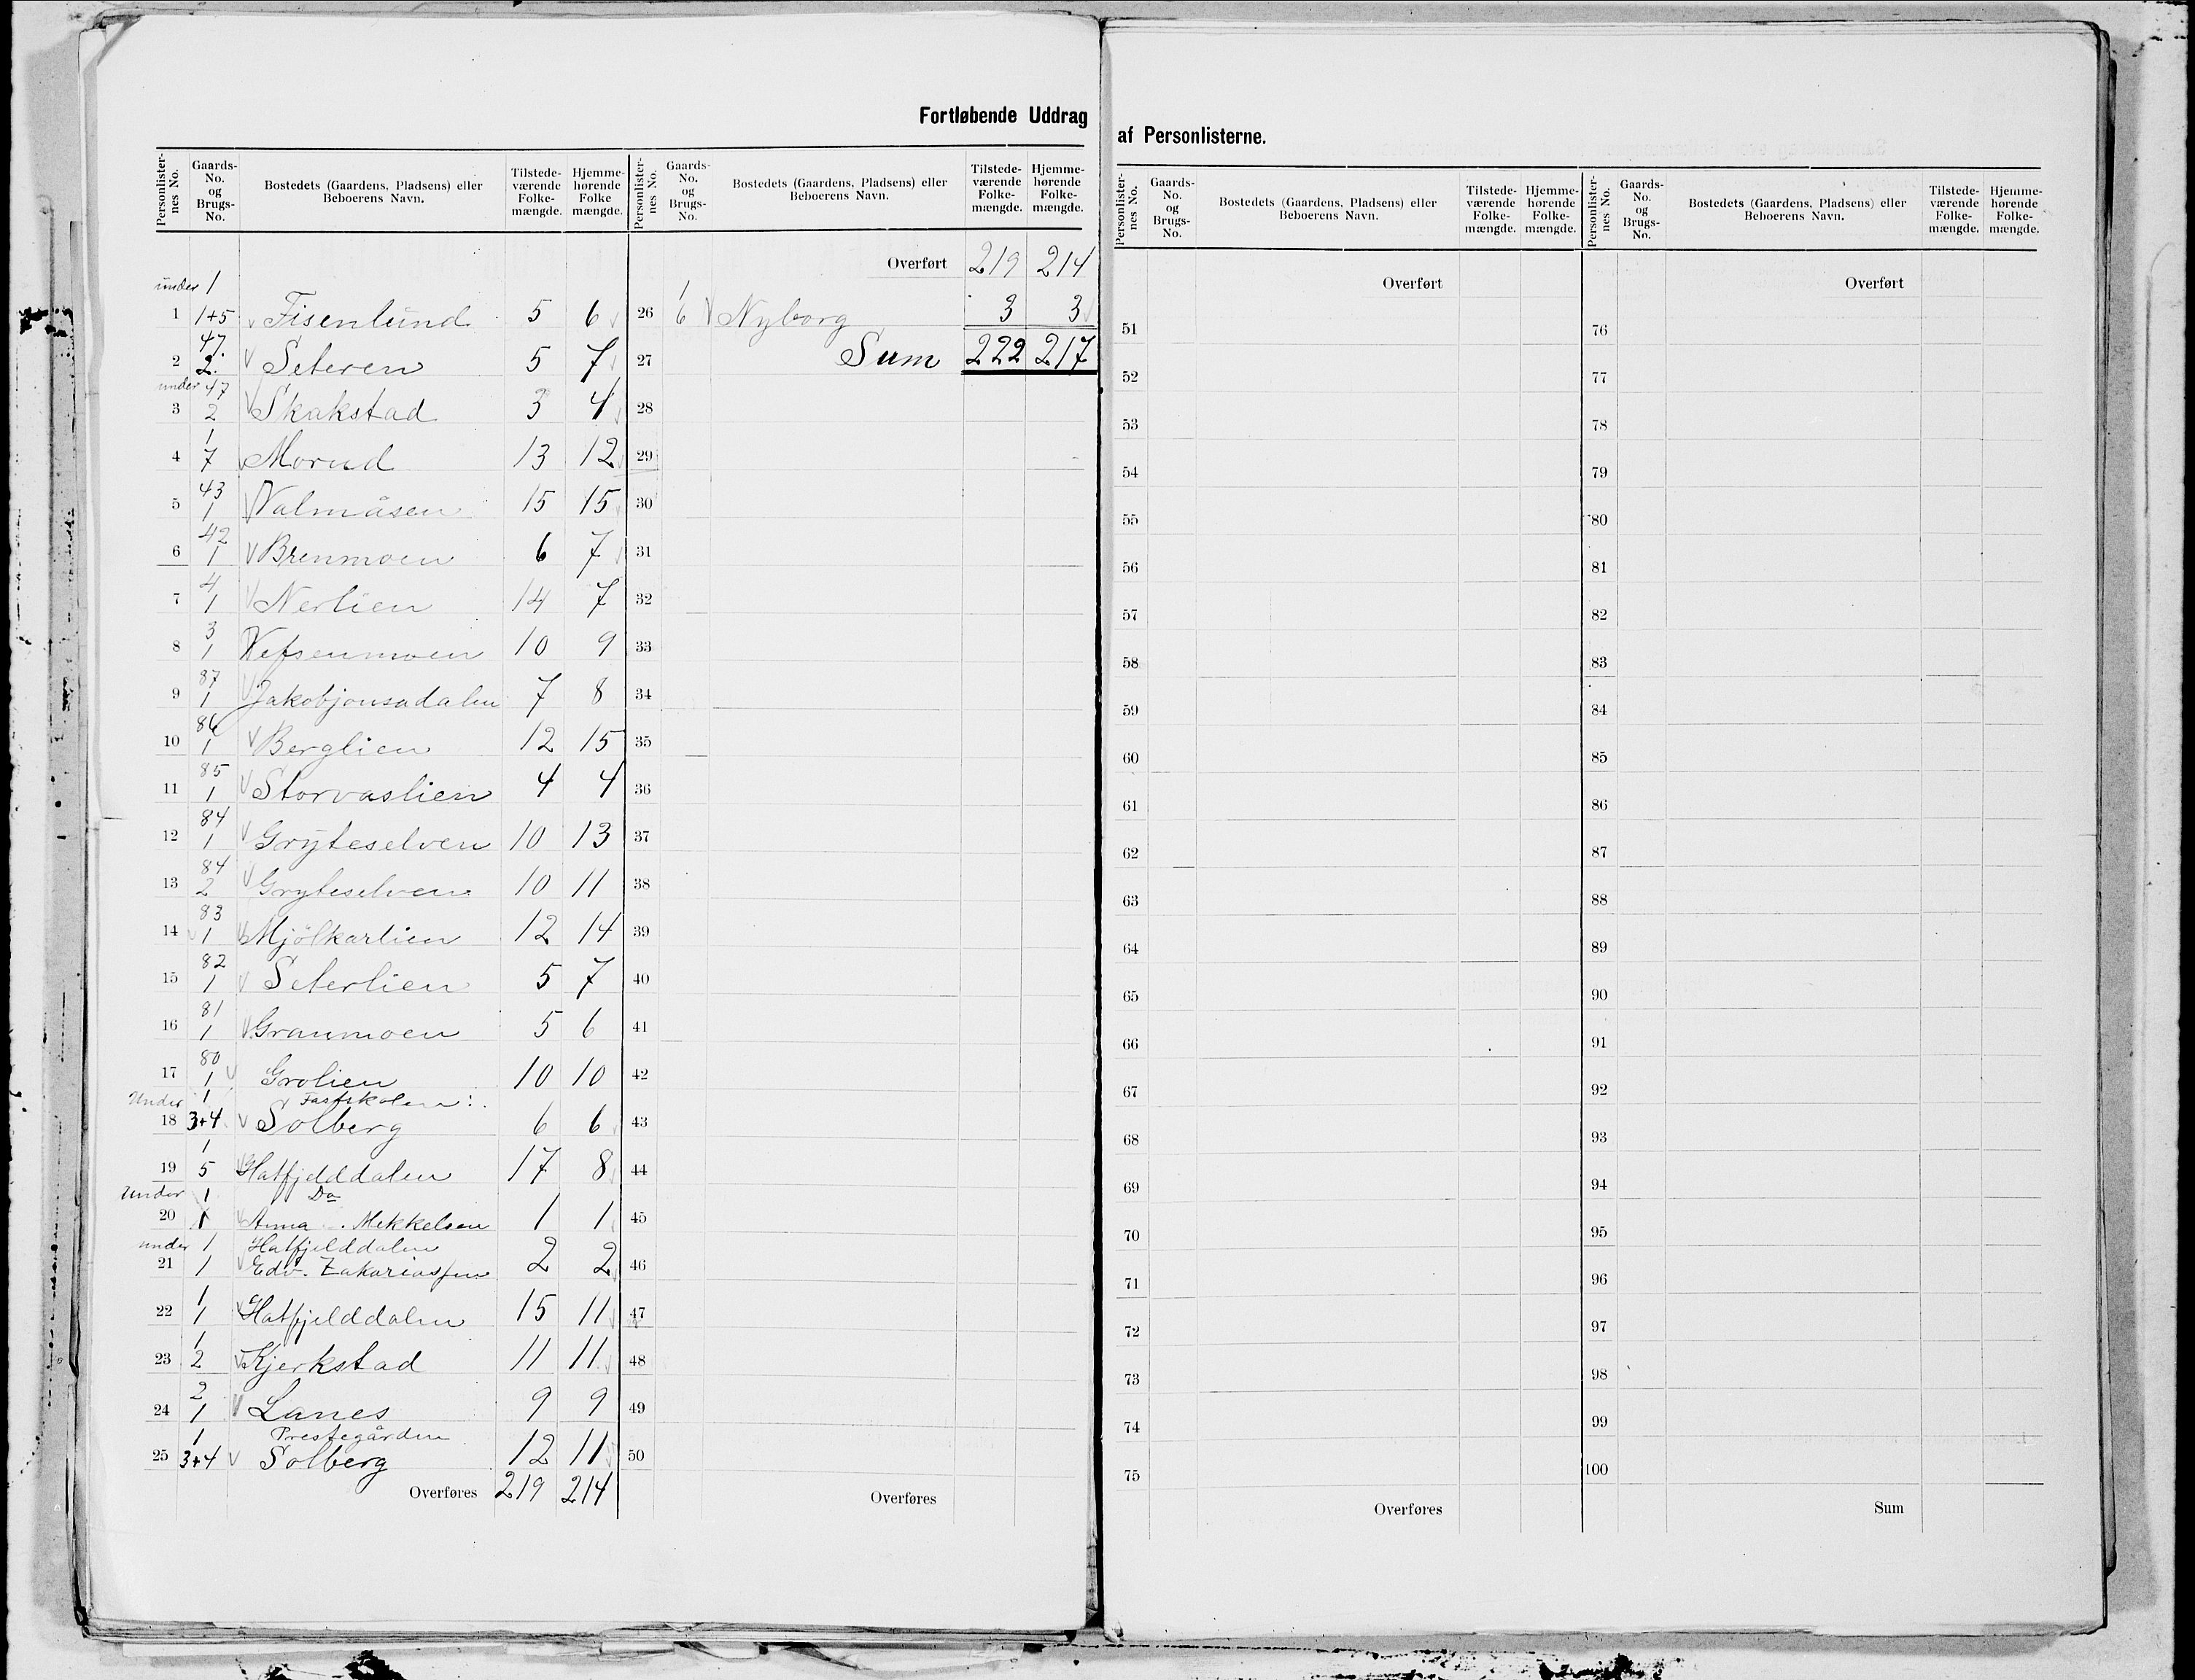 Fortløbende Uddrag af Personlisterne.
Personlisternes No. Gaards-No. og Brugs-No. Bostedets (Gaardens, Pladsens) eller Beboerens Navn. Tilstedeværende Folkemængde. Hjemmehørende Folkemængde.
under 1
1 1+5 Fisenlund 5 6
47
2 2 Seteren 5 7
under 47
3 2 Skakstad 3 4
1
4 7 Morud 13 12
43
5 1 Valmåsen 15 15
42
6 1 Brenmoen 6 7
4
7 1 Nerlien 14 7
3
8 1 Vefsenmoen 10 9
87
9 1 Jakobjonsadalen 7 8
86
10 1 Berglien 12 15
85
11 1 Storvaslien 4 4
84
12 1 Gryteselven 10 13
84
13 2 Gryteselven 10 11
83
14 1 Mjölkarlien 12 14
82
15 1 Seterlien 5 7
81
16 1 Granmoen 5 6
80
17 1 Grolien 10 10
Under 1 Fastskolen:
18 3+4 Solberg 6 6
1
19 5 Hatfjelddalen 17 8
Under 1 Do
20 1 Anna Mekkelsen 1 1
under 1 Hatfjelddalen
21 1 Edv. Zakariassen 2 2
1
22 1 Hatfjelddalen 15 11
1
23 2 Kjerkstad 11 11
2
24 1 Lanes 9 9
1 Prestegården
25 3+4 Solberg 12 11
Overføres 219 214
Personlisternes No. Gaards-No. og Brugs-No. Bostedets (Gaardens, Pladsens) eller Beboerens Navn. Tilstedeværende Folkemængde. Hjemmehørende Folkemængde.
Overført 219 214
1
26 6 Nyborg 3 3
27 Sum 222 217
28
29
30
31
32
33
34
35
36
37
38
39
40
41
42
43
44
45
46
47
48
49
50
Overføres
Personlisternes No. Gaards-No. og Brugs-No. Bostedets (Gaardens, Pladsens) eller Beboerens Navn. Tilstedeværende Folkemængde. Hjemmehørende Folkemængde.
Overført
51
52
53
54
55
56
57
58
59
60
61
62
63
64
65
66
67
68
69
70
71
72
73
74
75
Overføres
Personlisternes No. Gaards-No. og Brugs-No. Bostedets (Gaardens, Pladsens) eller Beboerens Navn. Tilstedeværende Folkemængde. Hjemmehørende Folkemængde.
Overført
76
77
78
79
80
81
82
83
84
85
86
87
88
89
90
91
92
93
94
95
96
97
98
99
100
Sum